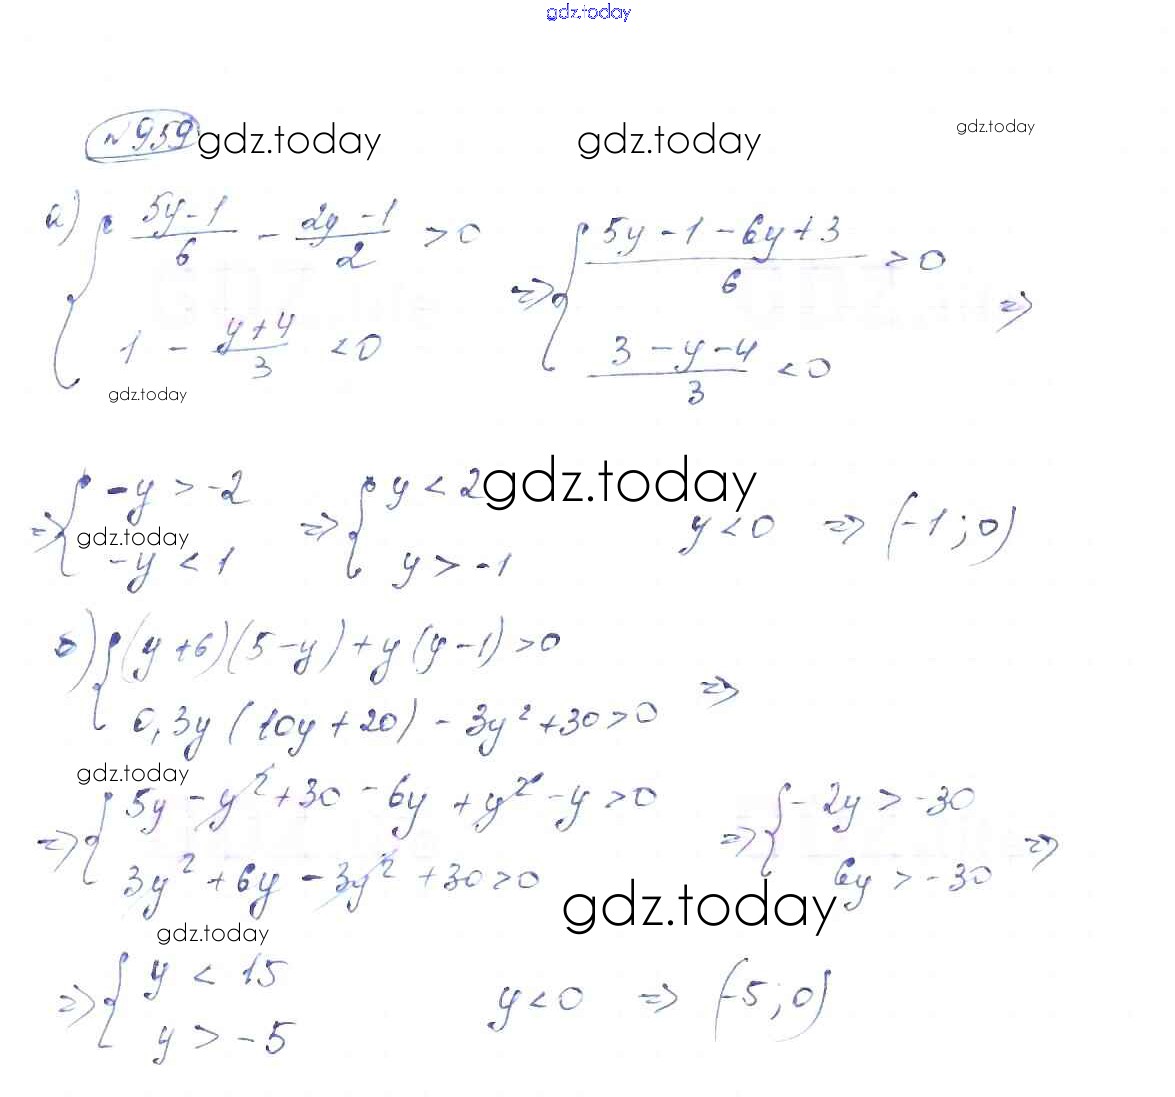 gdz.today
№959 gdz.today gdz.today gdz.today
а) { (5y-1)/6 - (2y-1)/2 > 0 ⇒ { (5y-1-6y+3)/6 > 0 ⇒
1 - (y+4)/3 < 0 (3-y-4)/3 < 0
gdz.today
⇒ { -y > -2 ⇒ { y < 2 gdz.today y < 0 ⇒ (-1; 0)
gdz.today
-y < 1 y > -1
б) { (y+6)(5-y)+y(y-1) > 0 ⇒
0,3y(10y+20) - 3y²+30 > 0
gdz.today
⇒ { 5y - y²+30 - 6y + y² - y > 0 ⇒ { -2y > -30 ⇒
3y² + 6y - 3y² + 30 > 0 6y > -30
gdz.today
gdz.today
⇒ { y < 15 y < 0 ⇒ (-5; 0)
y > -5